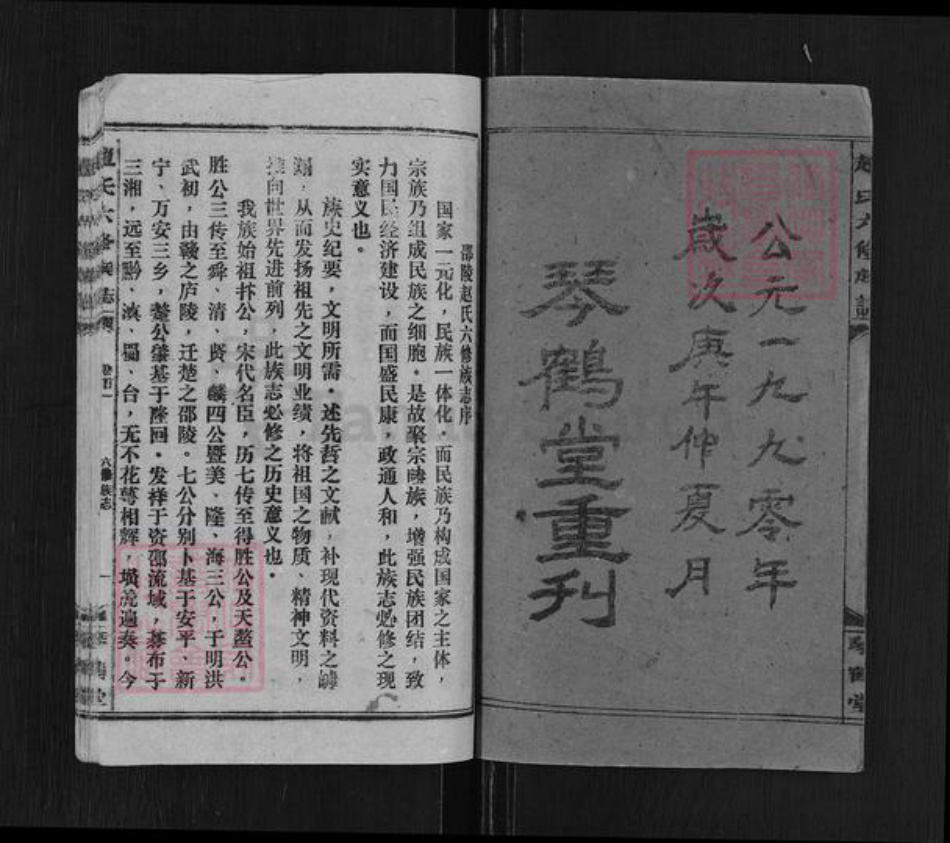 公元一九九零年
歲次庚午仲夏月
琴鶴堂重刊
邵陵赵氏六修族志序
国家一元化，民族一体化。而民族乃构成国家之主体，
宗族乃组成民族之细胞。是故聚宗睦族，增强民族团结，致
力国民经济建设，而国盛民康，政通人和，此族志必修之现
实意义也。
族史纪要，文明所需。述先哲之文献，补现代资料之
，从而发扬祖先之文明业绩，将祖国之物质、精神文明，
推向世界先进前列，此族志必修之历史意义也。
我族始祖抃公，宋代名臣，历七传至得胜公及天螯公。
胜公三传至舜、清、贤、麟四公暨美、隆、海三公，于明洪
武初，由赣之庐陵，迁楚之邵陵。七公分别卜基于安平、新
宁、万安三乡，螯公肇基于隆回。发祥于资邵流域，棊布于
三湘，远至黔、滇、蜀、台，无不花萼相辉，埙箎遍奏。今
赵氏六修族志
卷首一
六修族志
一
琴鶴堂